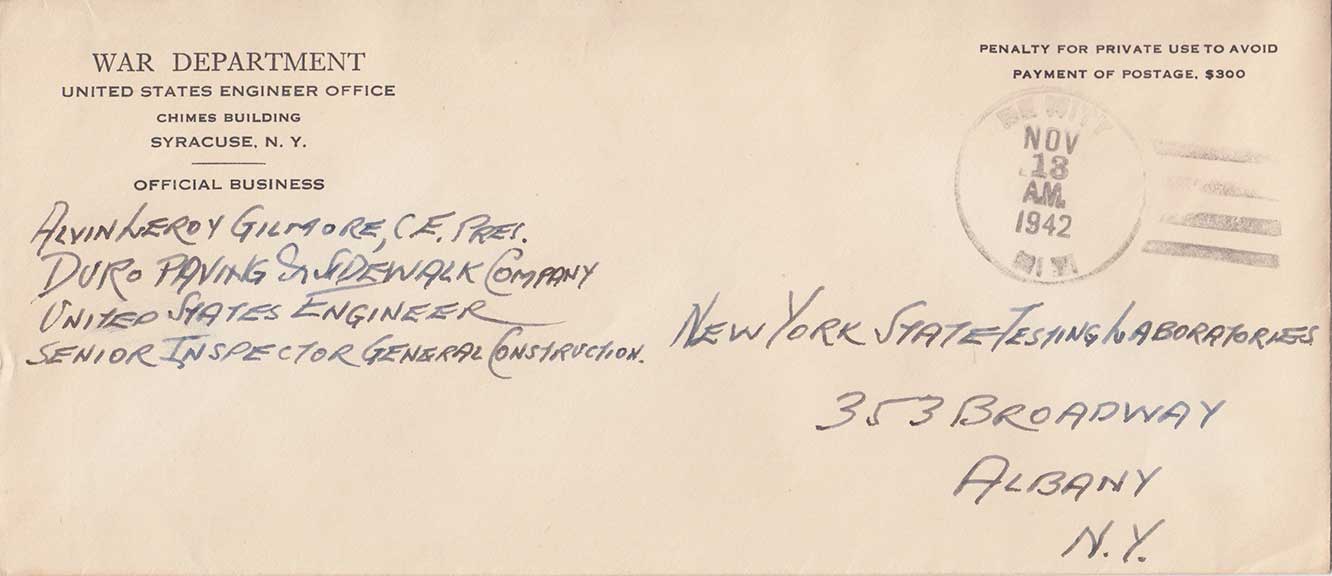 WAR DEPARTMENT
UNITED STATES ENGINEER OFFICE
CHIMES BUILDING
SYRACUSE, N. Y.
OFFICIAL BUSINESS
PENALTY FOR PRIVATE USE TO AVOID
PAYMENT OF POSTAGE, $300
DE WITT
NOV
13
A.M.
1942
ALVIN LEROY GILMORE, C.E. PRES.
DURO PAVING & SIDEWALK COMPANY
UNITED STATES ENGINEER
SENIOR INSPECTOR GENERAL CONSTRUCTION.
NEW YORK STATE TESTING LABORATORIES
353 BROADWAY
ALBANY
N.Y.